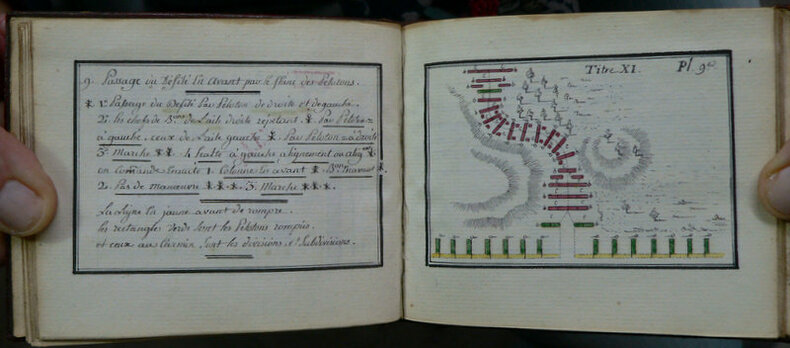 9. Passage du Défilé En avant par le flanc des Pelotons.
1º Passage du Défilé Par Peloton de droite et de gauche.
2º les chefs de B.ons de l'aile droite répétant. Par Peloton
à gauche, ceux de l'aile gauche Par Peloton à droite
3º Marche 4 halte à gauche alignement ou
on comande Ensuite 1. Colonne En avant
2º Pas de manœuvre 3. Marche
La Ligne En jaune avant de rompre.
les rectangles Verds sont les Pelotons rompus
et ceux au Carmin sont les divisions et Subdivisions.
Titre XI. Pl. 9e